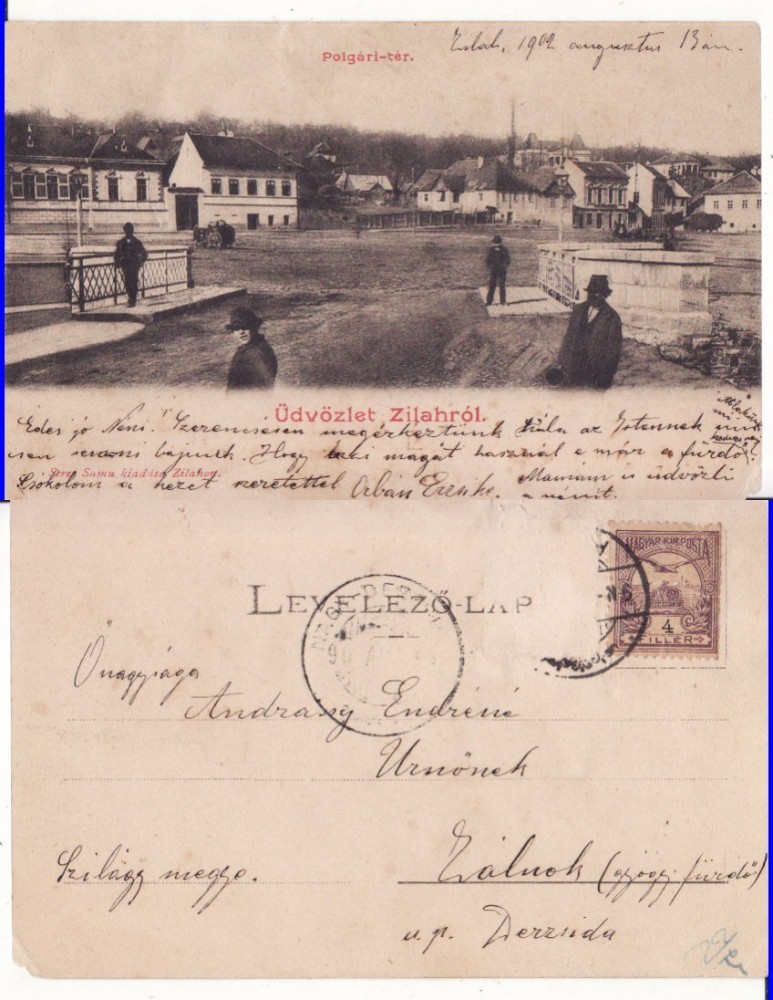 Polgári-tér.
Zilah, 1902 augusztus 13án.
Üdvözlet Zilahról.
Édes jó Néni! Szerencsésen megérkeztünk hála az Istennek
semmi bajunk. Hogy érzi magát használ a már a fürdő?
Seres Samu kiadása Zilahon.
Csókolom a kezét szeretettel Orbán Erzsike.
Mamám is üdvözli
a nénit.
LEVELEZŐ-LAP
MAGYAR·KIR·POSTA
4
FILLÉR
Őnagysága
Andrássy Endréné
Urnőnek
Szilágy megye.
Zálnok (gyógy fürdő)
u.p. Derzsida